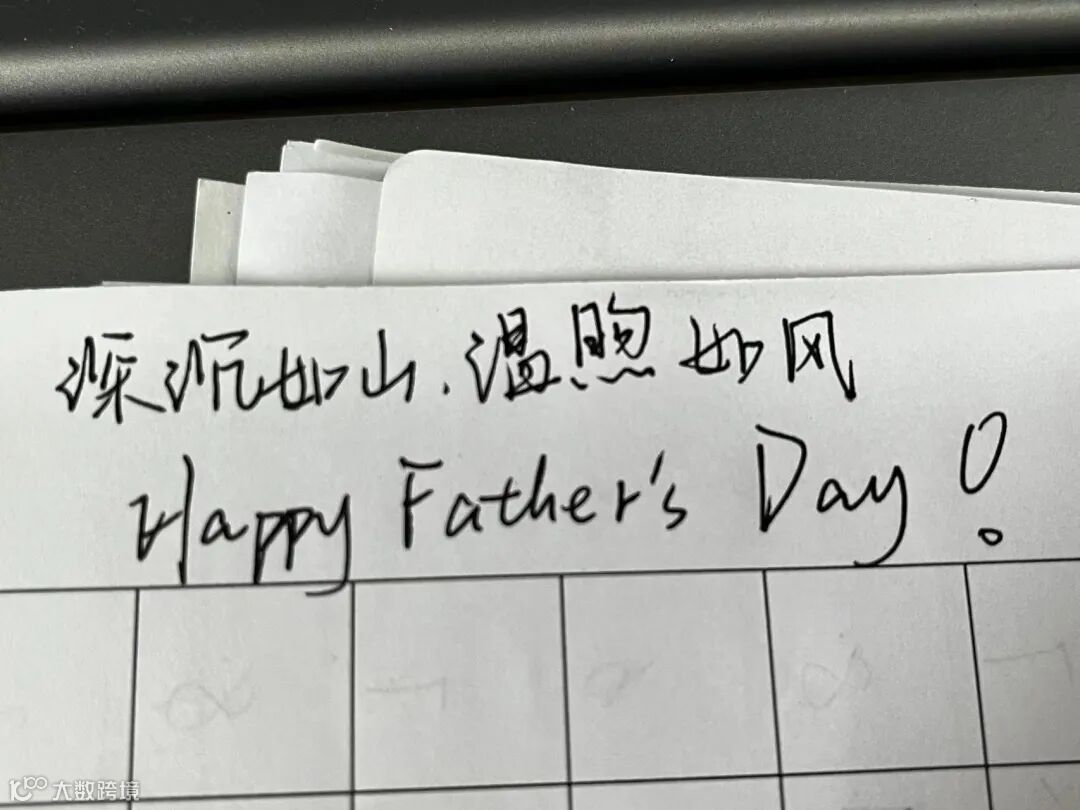 深沉如山.温煦如风
Happy Father's Day!
大数跨境